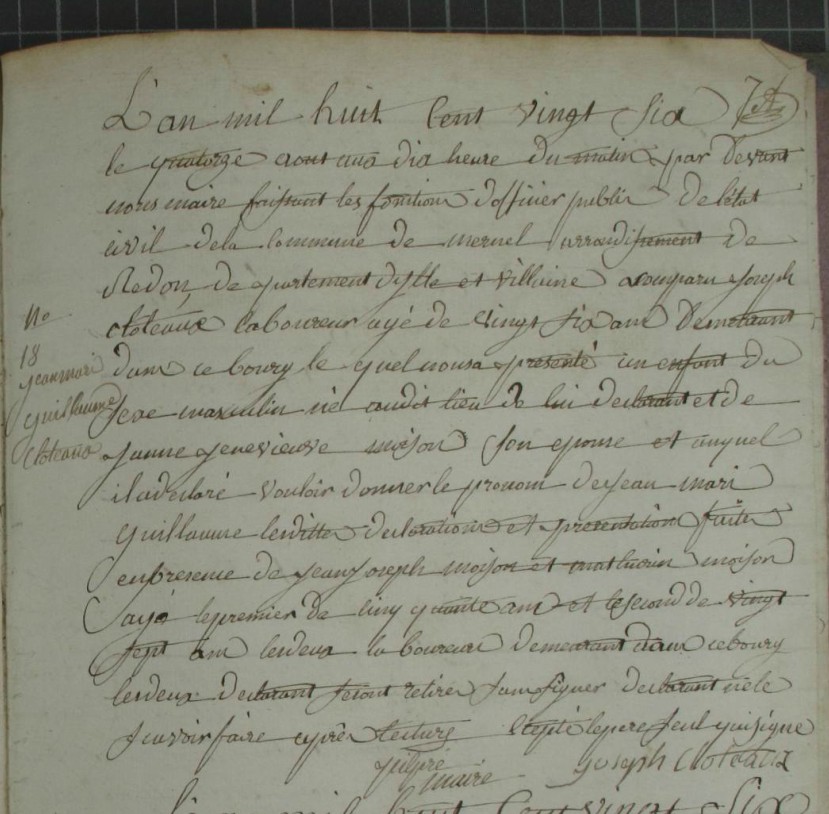 L'an mil huit Cent vingt Six
le quatorze aout aus dix heure du matin par devant
nous maire faissant les fonction d'officier public de l'état
civil dela Commune de mernel arrondissement de
Redon, departement d'ylle et villaine acomparu joseph
cloteaux laboureur agé de vingt six ans demeurant
dans ce bourg le quel nousa presenté un enfant du
sexe masculin né audit lieu de lui declarant et de
jeanne genevieuve moison son epouse et auquel
il adeclaré vouloir donner le prenom de jean mari
guillaume lesditte declaration et presentation faite
enpresence de jean joseph moison et mathurin moison
agé lepremier de cinquante ans et lesecond de vingt
sept ans lesdeux laboureur demeurant dans cebourg
lesdeux declarant seront retirer sans signer declarant nele
scavoir faire après lecture lepere seul qui signe
maire joseph cloteaux
No
18
jean mari
guillaume
cloteaux
L'an mil huit Cent vingt Six